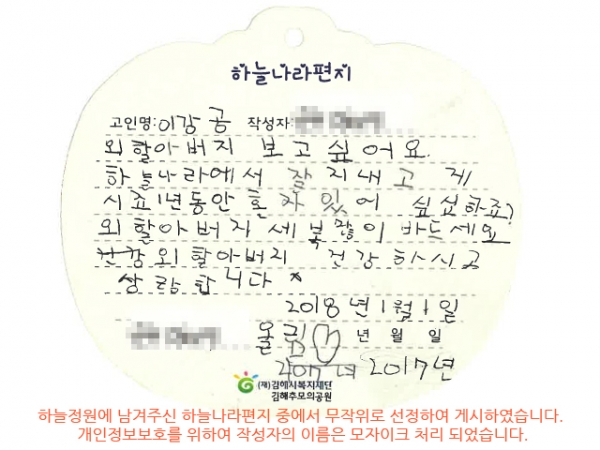 하늘나라편지
고인명:이강공 작성자:
외할아버지 보고싶어요.
하늘나라에서 잘지내고 계
시죠1년동안 혼자있어 심심하죠?
외할아버지 세복많이 바드세요
건강 외할아버지 건강하시고
상랑합니다*
2018년1월1일
올림 년 월 일
2017년 2017년
(재)김해시복지재단
김해추모의공원
하늘정원에 남겨주신 하늘나라편지 중에서 무작위로 선정하여 게시하였습니다.
개인정보보호를 위하여 작성자의 이름은 모자이크 처리 되었습니다.